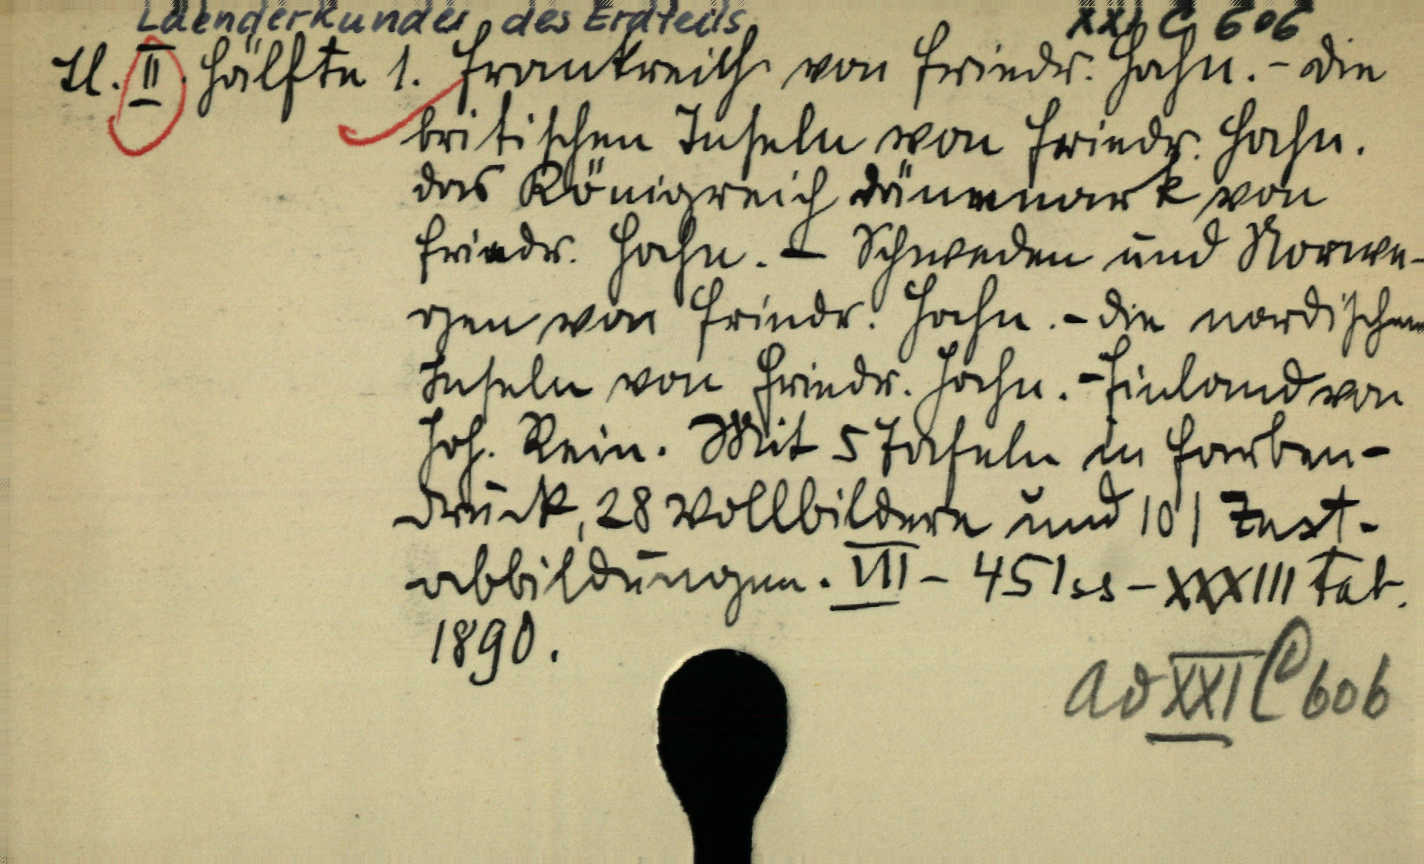 Laenderkunder des Erdteils XXI C 606
Tl. II. Hälfte 1. Frankreich von Friedr. Hahn. - Die
britischen Inseln von Friedr. Hahn.
Das Königreich Dänemark von
Friedr. Hahn. - Schweden und Norwe-
gen von Friedr. Hahn. - Die nordischen
Inseln von Friedr. Hahn. - Finland von
Joh. Rein. Mit 5 Tafeln in Farben-
druck, 28 Vollbildern und 101 Text-
abbildungen. VIII - 451 ss - XXXIII Taf.
1890.
Ad XXI C 606